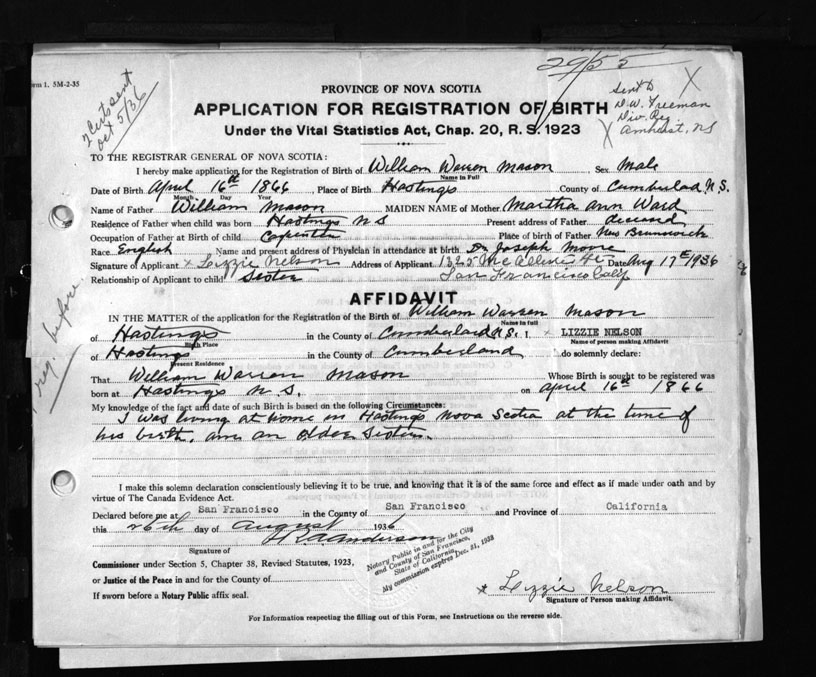 2955
orm 1. 5M-2-35
2 Certs sent
Oct 5/36
Sent to
D. W. Freeman
Div. Reg.
Amherst, NS
X
X
PROVINCE OF NOVA SCOTIA
APPLICATION FOR REGISTRATION OF BIRTH
Under the Vital Statistics Act, Chap. 20, R. S. 1923
TO THE REGISTRAR GENERAL OF NOVA SCOTIA:
I hereby make application for the Registration of Birth of William Warren Mason Sex Male
Name in Full
Date of Birth April 16th 1866 Place of Birth Hastings County of Cumberlad N.S.
Month Day Year
Name of Father William Mason MAIDEN NAME of Mother Martha Ann Ward
Residence of Father when child was born Hastings N S Present address of Father deceased
Occupation of Father at Birth of child Carpenter Place of Birth of Father New Brunswick
Race English Name and present address of Physician in attendance at birth Dr Joseph Moore
Signature of Applicant x Lizzie Nelson Address of Applicant 1325 McAllister St Date Aug 17th/1936
Relationship of Applicant to child Sister San Francisco Calf
1 reg. before
AFFIDAVIT
IN THE MATTER of the application for the Registration of the Birth of William Warren Mason
Name in full
of Hastings in the County of Cumberland N.S. I, x LIZZIE NELSON
Birth Place Name of person making Affidavit
of Hastings in the County of Cumberland do solemnly declare:
Present Residence
That William Warren Mason Whose Birth is sought to be registered was
born at Hastings N.S. on April 16th 1866
My knowledge of the fact and date of such Birth is based on the following Circumstances:
I was living at home in Hastings Nova Scotia at the time of
his birth, am an older sister.
I make this solemn declaration conscientiously believing it to be true, and knowing that it is of the same force and effect as if made under oath and by
virtue of The Canada Evidence Act.
Declared before me at San Francisco in the County of San Francisco and Province of California
this 26th day of August 1936
R A Anderson
Signature of
Notary Public in and for the City
and County of San Francisco,
State of California.
My commission expires Dec. 31, 1938
Commissioner under Section 5, Chapter 38, Revised Statutes, 1923,
or Justice of the Peace in and for County of
x Lizzie Nelson
If sworn before a Notary Public affix seal.
Signature of Person making Affidavit.
For Information respecting the filling out of this Form, see Instructions on the reverse side.